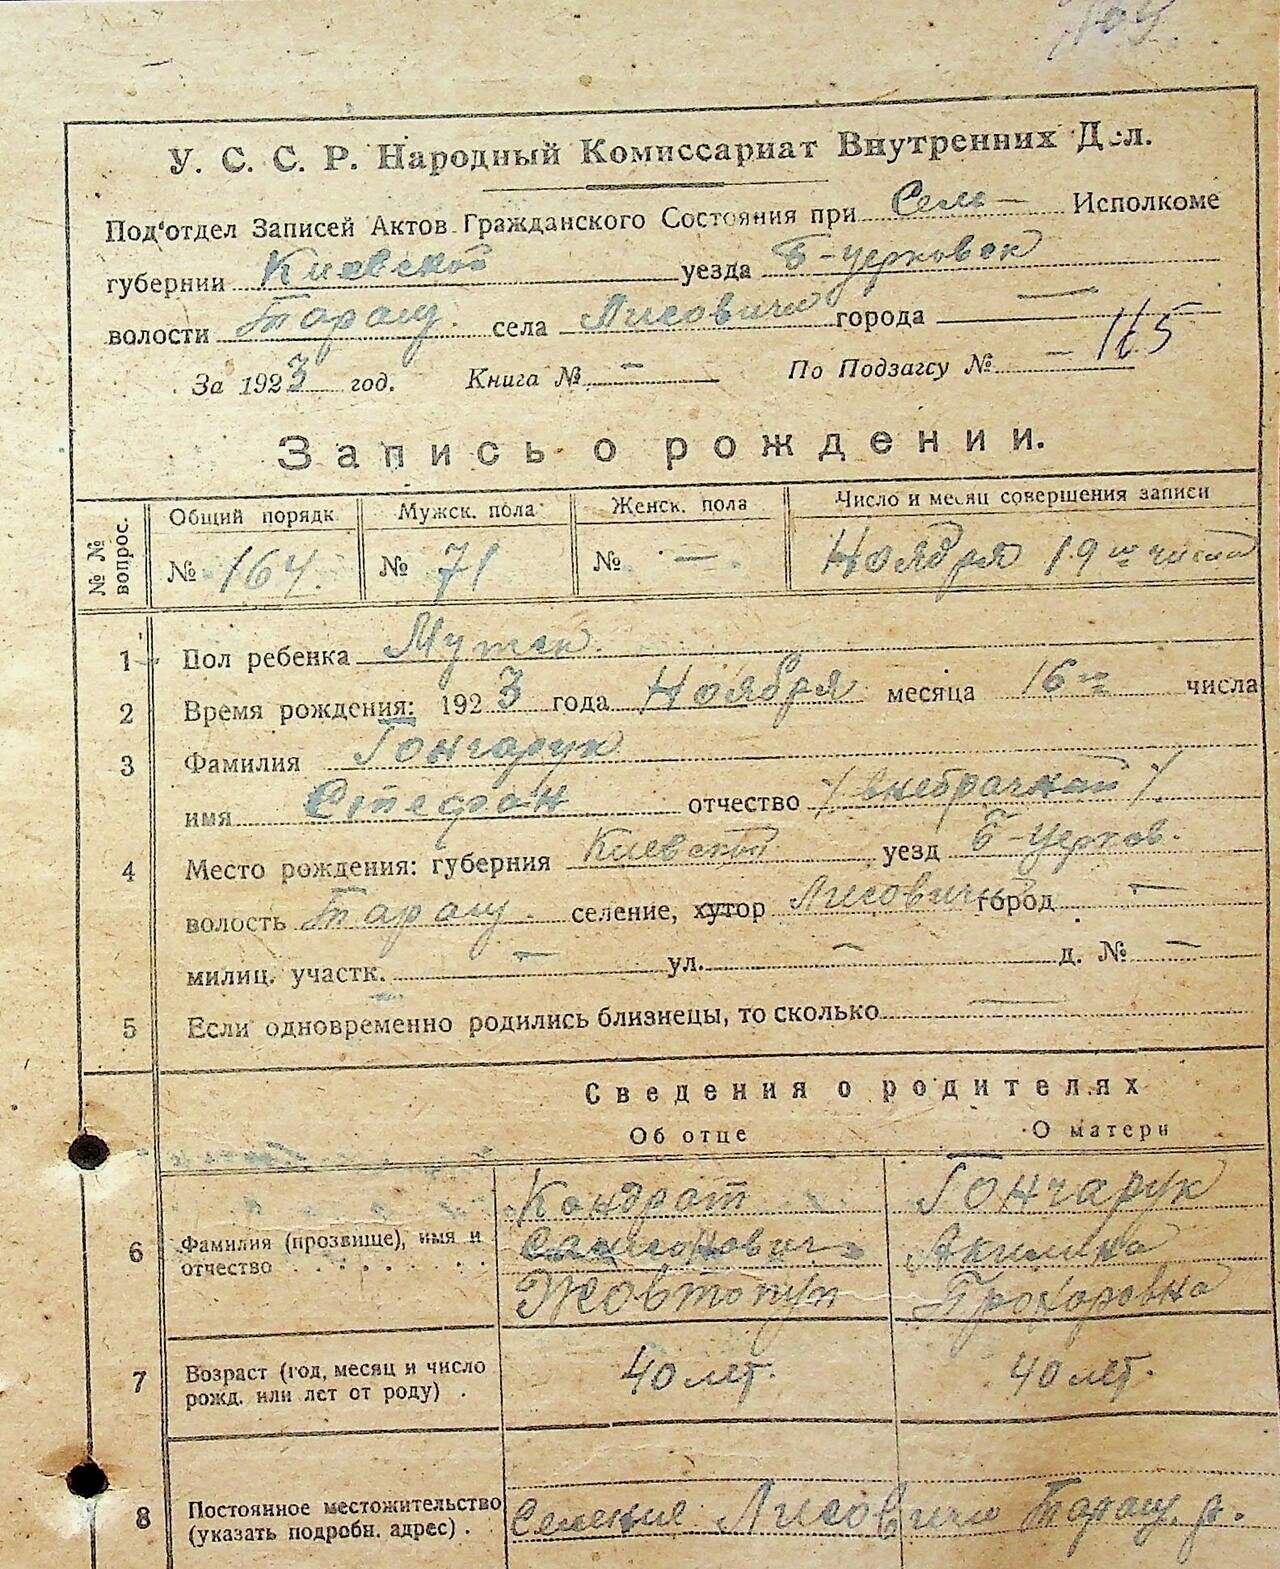 У. С. С. Р. Народный Комиссариат Внутренних Дел.
Под‘отдел Записей Актов Гражданского Состояния при Сель- Исполкоме
губернии Киевской уезда Б-церковск
волости Таращ. села Лисовичи города —
За 1923 год. Книга № — По Подзагсу № — 165
Запись о рождении.
№ № вопрос. Общий порядк Мужск. пола Женск. пола Число и месяц совершения записи
№ 164. № 71 № — Ноября 19го числа
1 Пол ребенка Мужск.
2 Время рождения: 1923 года Ноября месяца 16го числа
3 Фамилия Гончарук
имя Стефан отчество /внебрачный/
4 Место рождения: губерния Киевской уезд Б-Церков.
волость Таращ. селение, хутор Лисовичи город —
милиц. участк. — ул. — д. № —
5 Если одновременно родились близнецы, то сколько —
Сведения о родителях
Об отце О матери
Кондрат Гончарук
6 Фамилия (прозвище), имя и отчество . . . . . . . Акилина
Жовтопуп Прохоровна
7 Возраст (год, месяц и число рожд. или лет от роду) . 40 лет. 40 лет.
8 Постоянное местожительство (указать подробн. адрес) . Селение Лисовичи Таращ. р.